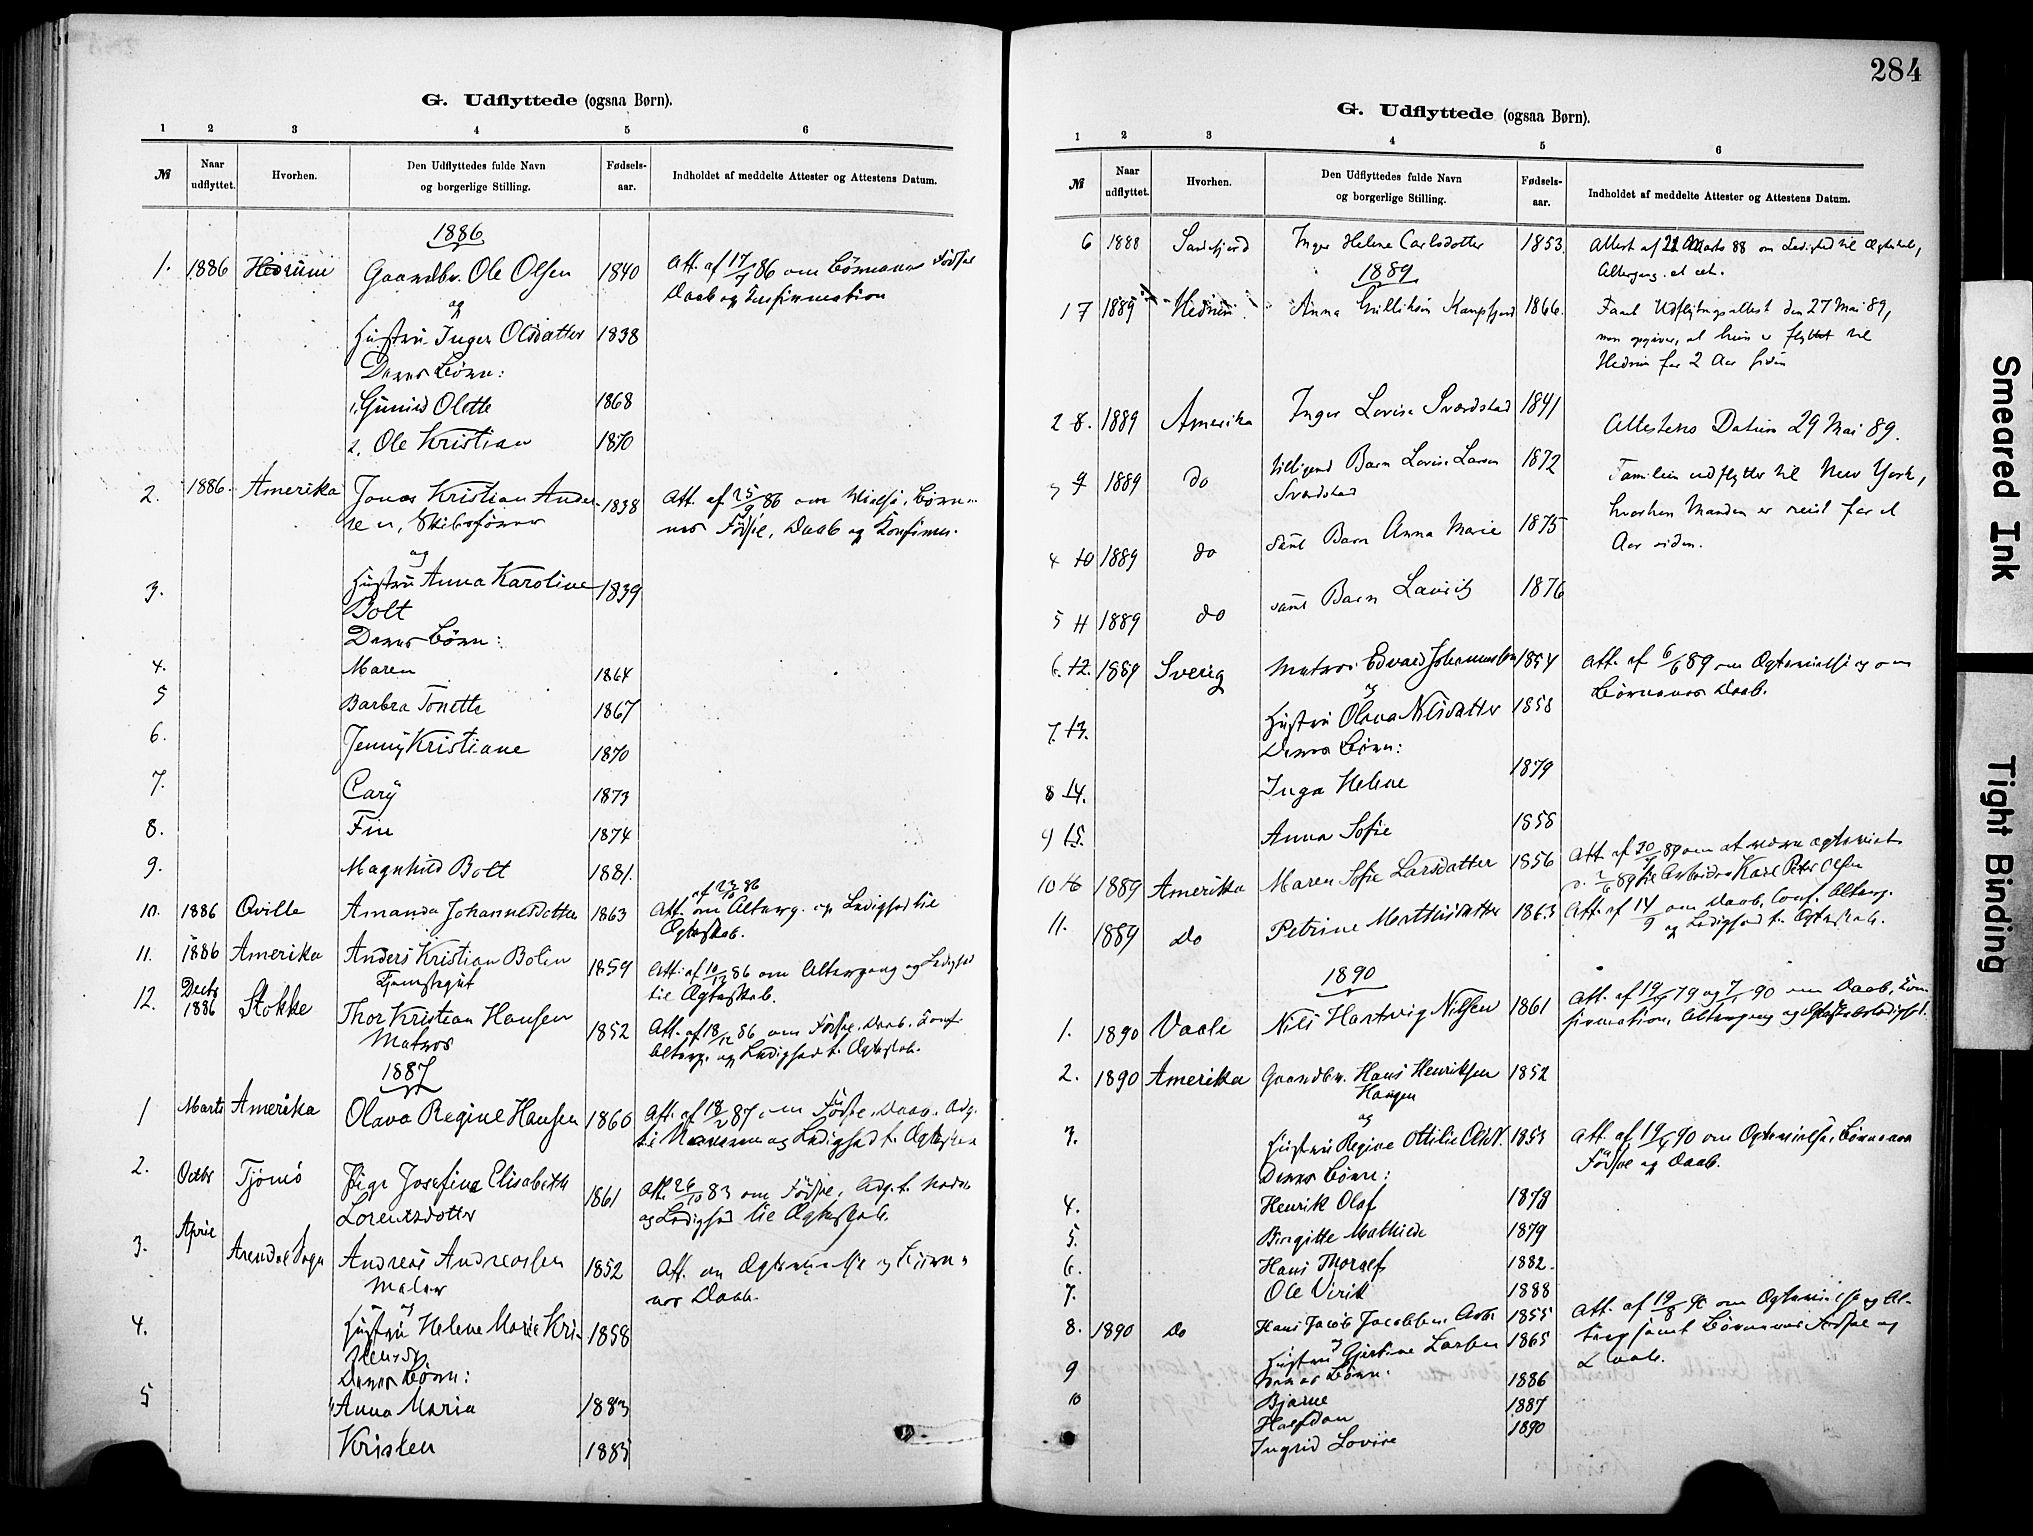 G. Udflyttede (ogsaa Børn).
1 2 3 4 5 6
№ Naar udflyttet. Hvorhen. Den Udflyttedes fulde Navn og borgerlige Stilling. Fødsels-aar. Indholdet af meddelte Attester og Attestens Datum.
1886
1. 1886 Hedrum Gaardbr. Ole Olsen 1840 Att. af 86 om Børnenes Fødsel
og Daab og Konfirmation
Hustru Inger Olsdatter 1838
Deres Børn:
1, Olette 1868
2. Ole Kristian 1870
2. 1886 Amerika Jonas Kristian Ander- 1838 Att. af 25/9 86 om Vielse, Børne-
sen, Skibsfører nes Fødsel, Daab og Konfirm.
og
3. Hustru Anna Karoline 1839
Bolt
Deres Børn:
4. Maren 1864
5 Barbra Tonette 1867
6. Jenny Kristiane 1870
7. Cary 1873
8. Fin 1874
9. Magnhild Bolt 1881.
10. 1886 Qville Amanda Johannesdatter 1863 Att. af 23/10 86 om Alterg. og Ledighed til
Egteskab.
11. 1886 Amerika Anders Kristian Bolin 1859 Att. af 10/12 86 om Altergang og Ledighed
til Ægteskab.
12. Decbr 1886 Stokke Thor Kristian Hansen 1852 Att. af 18/12 86 om Fødsel, Daab, Konf.
Matros Alterg. og Ledighed t. Ægteskab.
1887
1 Marts Amerika Olava Regine Hansen 1860 Att. af 18/2 87 om Fødsel, Daab, Adg.
til Nadveren og Ledighed t. Ægteskab
2. Octbr Tjömö Pige Josefine Elisabeth 1861 Att. 26/10 83 om Fødsel, Adg. t. Nadv.
Lorentsdatter og Ledighed til Ægteskab.
3. April Arendal Sogn Andreas Andreassen 1852 Att. om Ægtevielse og Børne-
Maler nes Daab.
og
4. Hustru Helene Marie Kri- 1858
Deres Børn:
5 Anna Maria 1883
Kristen 1885
284
G. Udflyttede (ogsaa Børn).
1 2 3 4 5 6
№ Naar udflyttet. Hvorhen. Den Udflyttedes fulde Navn og borgerlige Stilling. Fødsels-aar. Indholdet af meddelte Attester og Attestens Datum.
6 1888 Sandefjord Inger Helene Carlsdotter 1853. Attest af 21 Marts 88 om Ledighed til Ægteskab,
Altergang. et cet.
1889
1 7 1889 Hedrum Anna Gulliksen 1866. Famt Udflytningsattest den 27 Mai 89,
men opgiver, at hun er flyttet til
Hedrum for 2 Aar siden
2 8. 1889 Amerika Inger Lovise Sværdstad 1841 Attestens Datum 29 Mai 89.
3 9 1889 do Barn Lovise Larsen 1872 Familien udflytter til New York,
Sværdstad hvorhen Manden er reist for et
4 10 1889 do samt Barn Anna Marie 1875 Aar siden.
5 11 1889 do samt Barn Lauritz 1876
6. 12. 1889 Sverig Matros Edvard Johannessen 1854 Att. af 6/6 89 om Ægtevielse og om
og Børnenes Daab.
7. 13. Hustru Olava Nilsdatter 1858
Deres Børn:
8 14. Inga Helene 1879
9 15. Anna Sofie 1858
10 16 1889 Amerika Maren Sofie Larsdatter 1856 Att. af 89 om at være ægteviet
89 til Arbeider Karl Peter Olsen
11. 1889 Do Petrine Matthisdatter 1863 Att. af 14/9 om Daab, Conf. Alterg.
og Ledighed t. Ægteskab.
1890
1. 1890 Vaale Nils Hartvig Nilsen 1861 Att. af 79 og 90 om Daab, Kon-
firmation, Altergang og Ægteskabsledighed.
2. 1890 Amerika Gaardbr. Hans Henriksen 1852
Haugen
og
3. Hustru Regine Ottilie Olsd. 1853 Att. af 90 om Ægtevielse, Børnenes
Deres Børn: Fødsel og Daab.
4. Henrik Olaf 1878
5. Birgitte Mathilde 1879
6. Hans Thoralf 1882.
7. Ole Virik 1888
8. 1890 Do Hans Jacob Jacobsen, Arb. 1855 Att. af 19/8 90 om Ægtevielse og Al-
og terg samt Børnenes Fødsel og
Hustru Gjertine Larsen 1865 Daab.
9 Deres Børn: 1886
10 Bjarne 1887
Halfdan 1890
Ingrid Lovise
Smeared Ink
Tight Binding